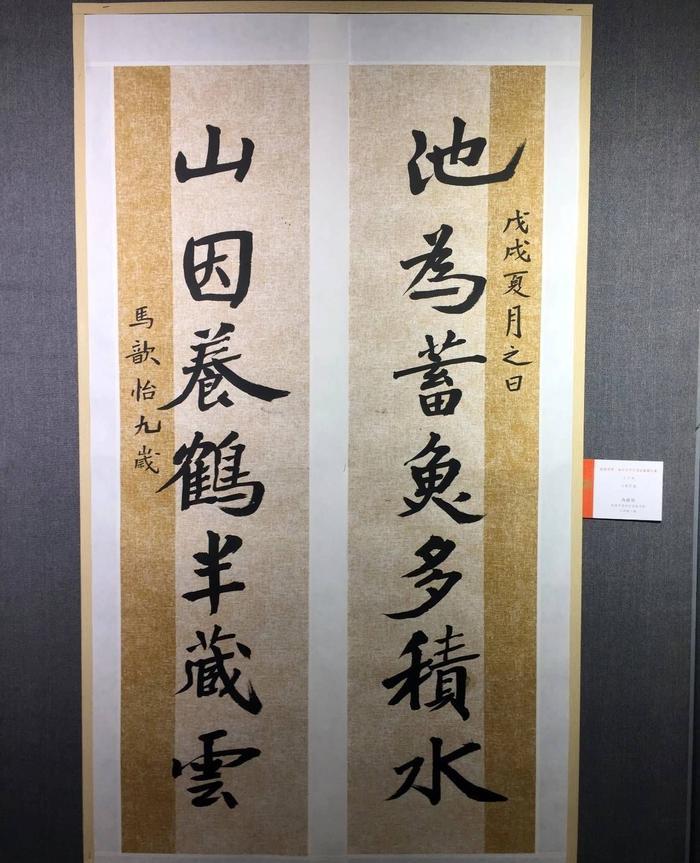 戊戌夏月之日
池為蓄魚多積水
山因養鶴半藏雲
馬歆怡九歲